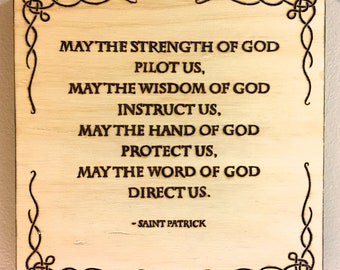 MAY THE STRENGTH OF GOD
PILOT US,
MAY THE WISDOM OF GOD
INSTRUCT US,
MAY THE HAND OF GOD
PROTECT US,
MAY THE WORD OF GOD
DIRECT US.
- SAINT PATRICK